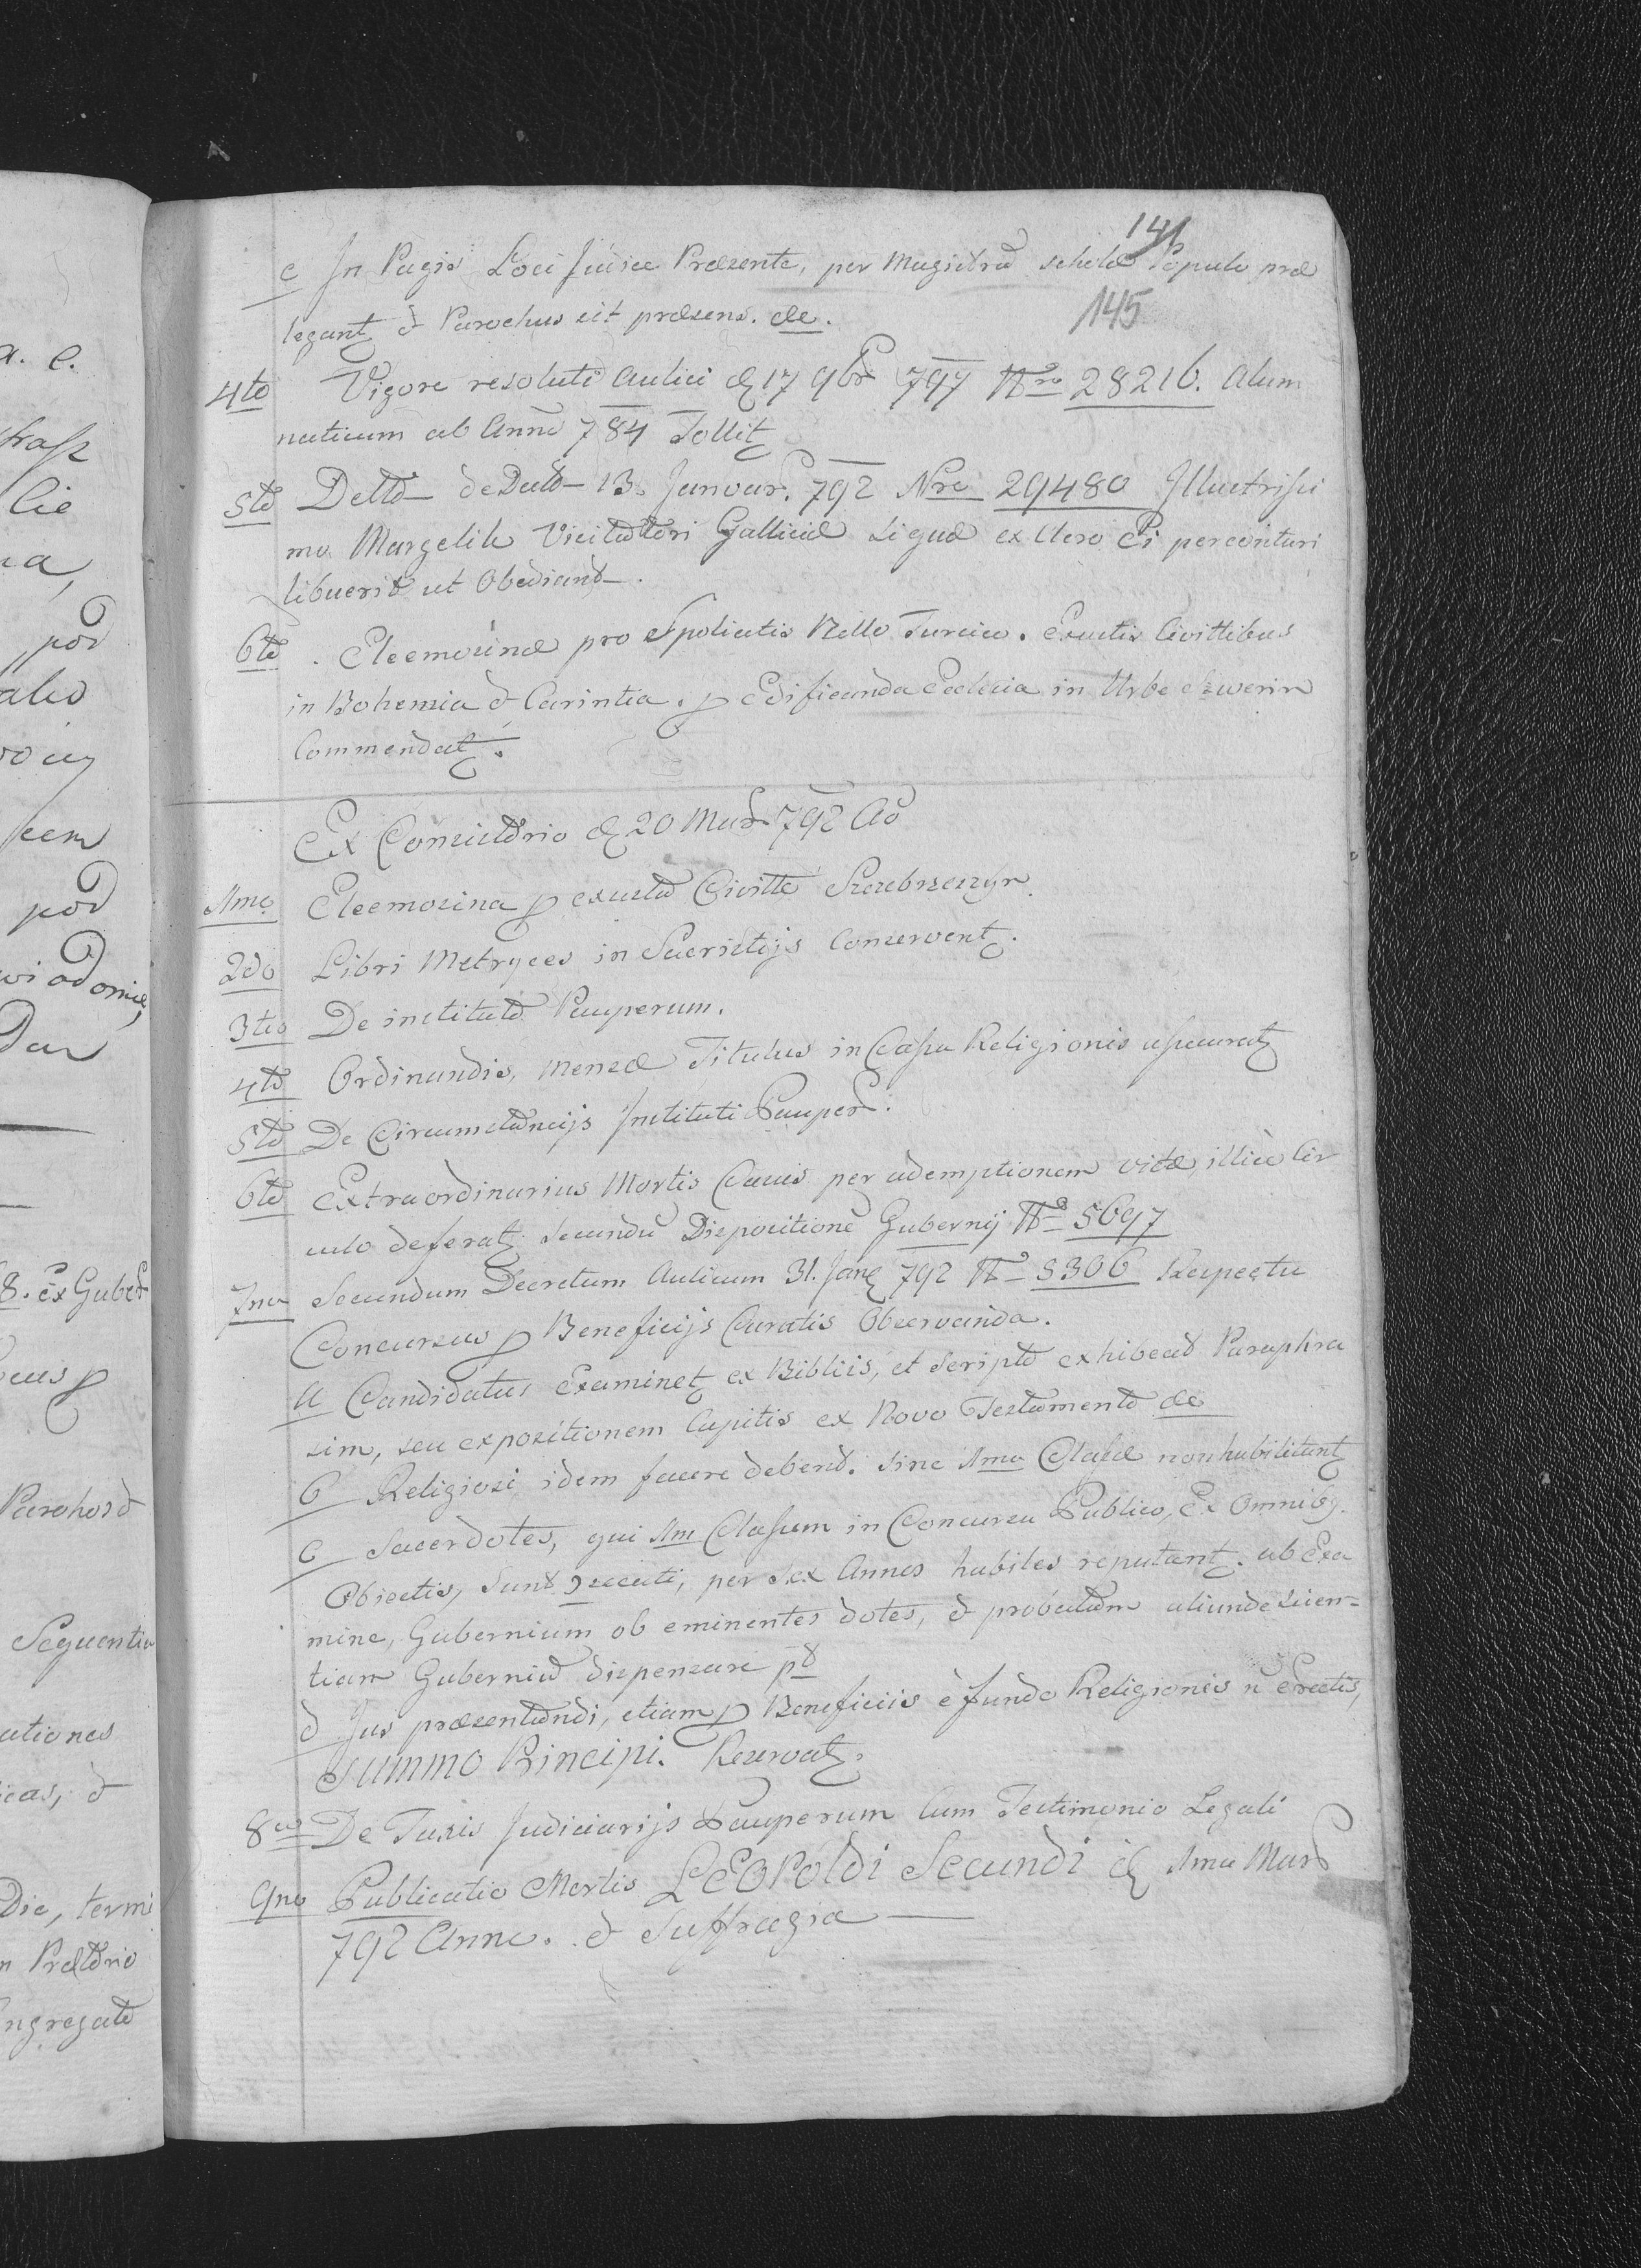 141
c In Pagis Loci Judice Præsente, per Magistrū scholæ Populo præ
145
legant & Parochus sit præsens. &c.
4to Vigore resoluti Aulici d 17 9br 797 Nro 28216. Alum
naticum ab Anno 784 Tollit
5to Detto de Dato 13. Januar. 792 Nro 29480 Illustrissi
mo Margelik Visitatori Galliciæ siquæ ex Clero Ei percontari
libuerit ut Obediant.
6to Eleemosinæ pro Spoliatis Bello Turcico. Exustis Civittibus
in Bohemia & Carintia. p Edificanda Ecclesia in Urbe Szwerin
Commendat.
Ex Consistorio d 20 Mar. 792 Ao
1mo Eleemosina p exusta Civitte Szczebrzeszyn.
2do Libri Metryces in Sacristijs Conservent.
3tio De instituto Pauperum.
4to Ordinandis, Mensæ Titulus in Cassa Religionis assecurat
5to De Circumstancijs Instituti Pauper.
6to Extraordinarius Mortis Casus per ademptionem vitæ, illico Cir
culo deferat secundū Dispositionē Gubernij No 5697
7mo Secundum Decretum Aulicum 31. Jan 792 No 5306 Respectu
Concursus p Beneficijs Curatis Observanda.
a Candidatus Examinet ex Bibliis, et Scripto exhibeat Paraphra
sim, seu expositionem Capitis ex Novo Testamento &c
b Religiosi idem facere debent. sine 1ma Classe non habilitant
c Sacerdotes, qui 1m Classem in Concursu Publico, Ex Omnibq.
Obiectis, sunt ɔsecuti, per sex Annos habiles reputant. ab Exa
mine, Gubernium ob eminentes dotes, & probatam aliunde Scien=
tiam Guberniū dispensare pt
d Jus præsentandi, etiam p Beneficiis è fundo Religionis ñ Erectis,
SUMMO Principi. Reservat.
8vo De Taxis Judiciarijs Pauperum Cum Testimonio Legali
9no Publicatio Mortis LEOPOLDI Secundi d 1ma Mar
792 Anno. & Suffragia